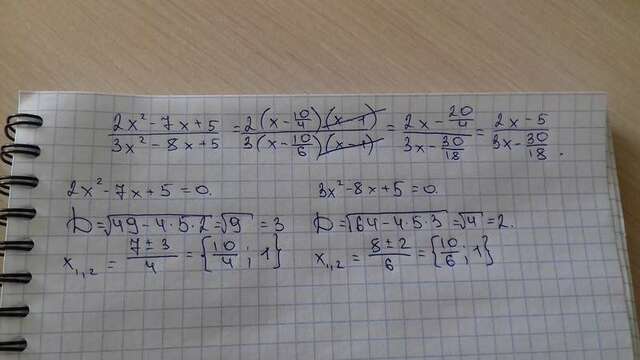 (2x² - 7x + 5)/(3x² - 8x + 5) = 2(x - 10/4)(x - 1)/3(x - 10/6)(x - 1) = (2x - 20/4)/(3x - 30/18) = (2x - 5)/(3x - 30/18).
2x² - 7x + 5 = 0.
D = √49 - 4·5·2 = √9 = 3
x₁,₂ = (7 ± 3)/4 = {10/4; 1}
3x² - 8x + 5 = 0.
D = √64 - 4·5·3 = √4 = 2.
x₁,₂ = (8 ± 2)/6 = {10/6; 1}